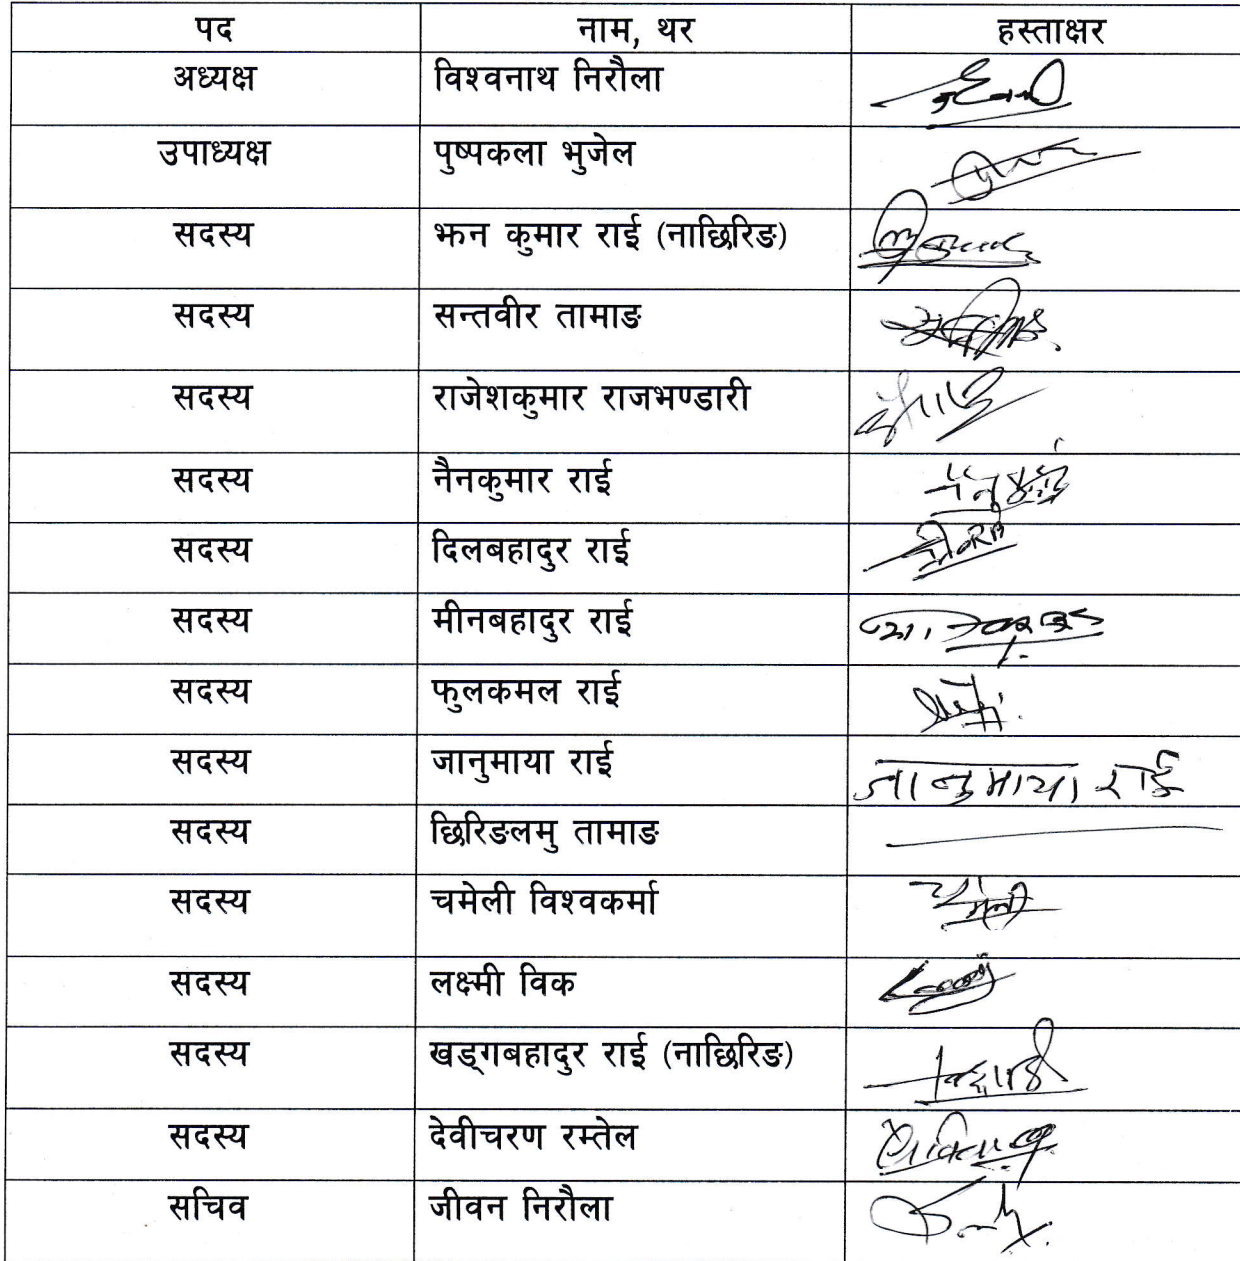 पद नाम, थर हस्ताक्षर
अध्यक्ष विश्वनाथ निरौला
उपाध्यक्ष पुष्पकला भुजेल
सदस्य झन कुमार राई (नाछिरिङ)
सदस्य सन्तवीर तामाङ
सदस्य राजेशकुमार राजभण्डारी
सदस्य नैनकुमार राई
सदस्य दिलबहादुर राई
सदस्य मीनबहादुर राई
सदस्य फुलकमल राई
सदस्य जानुमाया राई जानुमाया राई
सदस्य छिरिङलमु तामाङ
सदस्य चमेली विश्वकर्मा चमेली
सदस्य लक्ष्मी विक
सदस्य खड्गबहादुर राई (नाछिरिङ)
सदस्य देवीचरण रम्तेल
सचिव जीवन निरौला